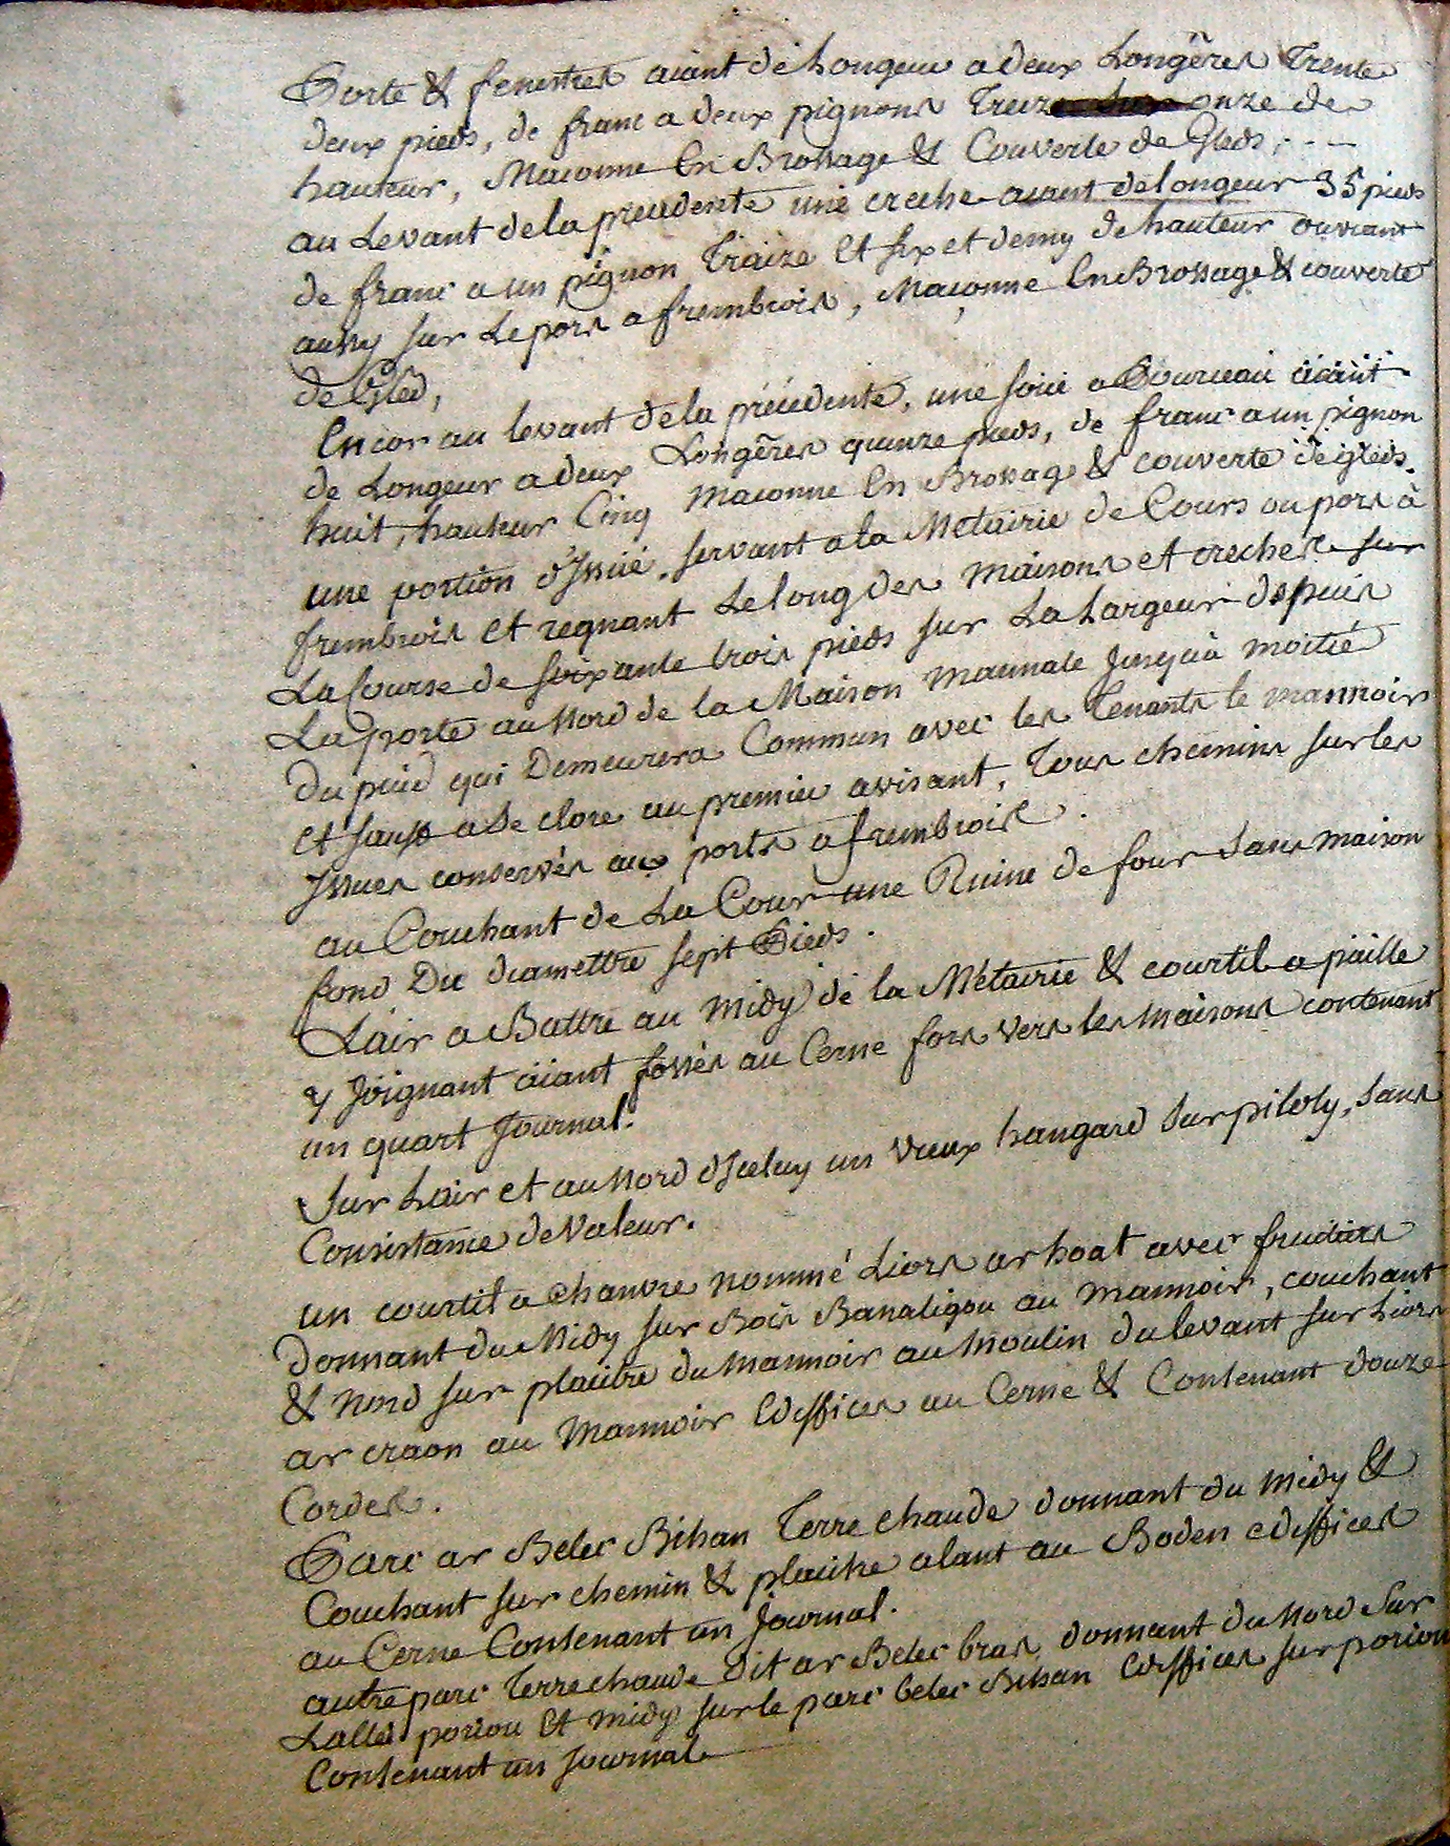 Porte & fenestres aiant de Longeur a deux Longêres Trente
deux pieds, de franc a deux pignons Treize onze de
hauteur, Maconne En Brossage & Couverte de Gleds, - - -
au Levant de la precedente une creche aiant de longeur 35 pieds
de franc a un pignon Traize et six et demy de hauteur ouvrant
aussy sur Le pors a frembrois, Maconne En Brossage & couverte
de Gled,
Encor au levant de la précédente, une soüe a Pourceau äiant
de Longeur a deux Longêres quinze pieds, de franc a un pignon
huit, hauteur Cinq maconne En Brossage & couverte de gleds.
une portion d'Issüe servant a la Metairie de Cours ou pors à
frembrois et regnant Le long des maisons et creches sur
La Course de soixante trois pieds sur La Largeur depuis
La porte au Nord de la Maison mannale jusqu'à moitié
du puid qui Demeurera Commun avec les Tenants le mannoir
et sauf a se clore au premier avisant, Tous chemins sur les
Issues conservés aux ports a frembrois.
au Couhant de La Cour une Ruine de four sans maison
fond Du diamettre sept Pieds.
Lair a Battre au midy de la Métairie & courtil a paille
y Joignant äiant fossés au Cerne fors vers les maisons contenant
un quart Journal.
Sur Lair et au Nord d'Jceluy un vieux hangard sur piloty, sans
Consistance de Valeur.
un courtil a chanvre nommé Liors ar hoat avec fruitiers
donnant du Midy sur Bois Banaligou au mannoir, couchant
& Nord sur placitre du mannoir au Moulin du levant sur Liors
ar craon au Mannoir Ediffices au Cerne & Contenant douze
Cordes.
Parc ar Belec Bihan Terre chaude donnant du midy &
Couchant sur chemin & placitre alant au Boden ediffices
au Cerne Contenant un Journal.
autre parc Terre chaude dit ar Belec bras donnant du Nord sur
Lallée poriou et midy sur le parc belec Bihan Ediffices sur poriou
Contenant un Journal